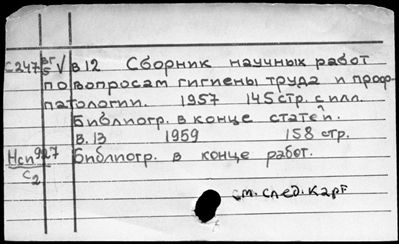 С247 ВГ/5 V в.12 Сборник научных работ
по вопросам гигиены труда и проф-
патологии. 1957 145 стр. с илл.
Библиогр. в конце статей.
В.13 1959 158 стр.
Нсп927 Библиогр. в конце работ.
С2
см. след. карт